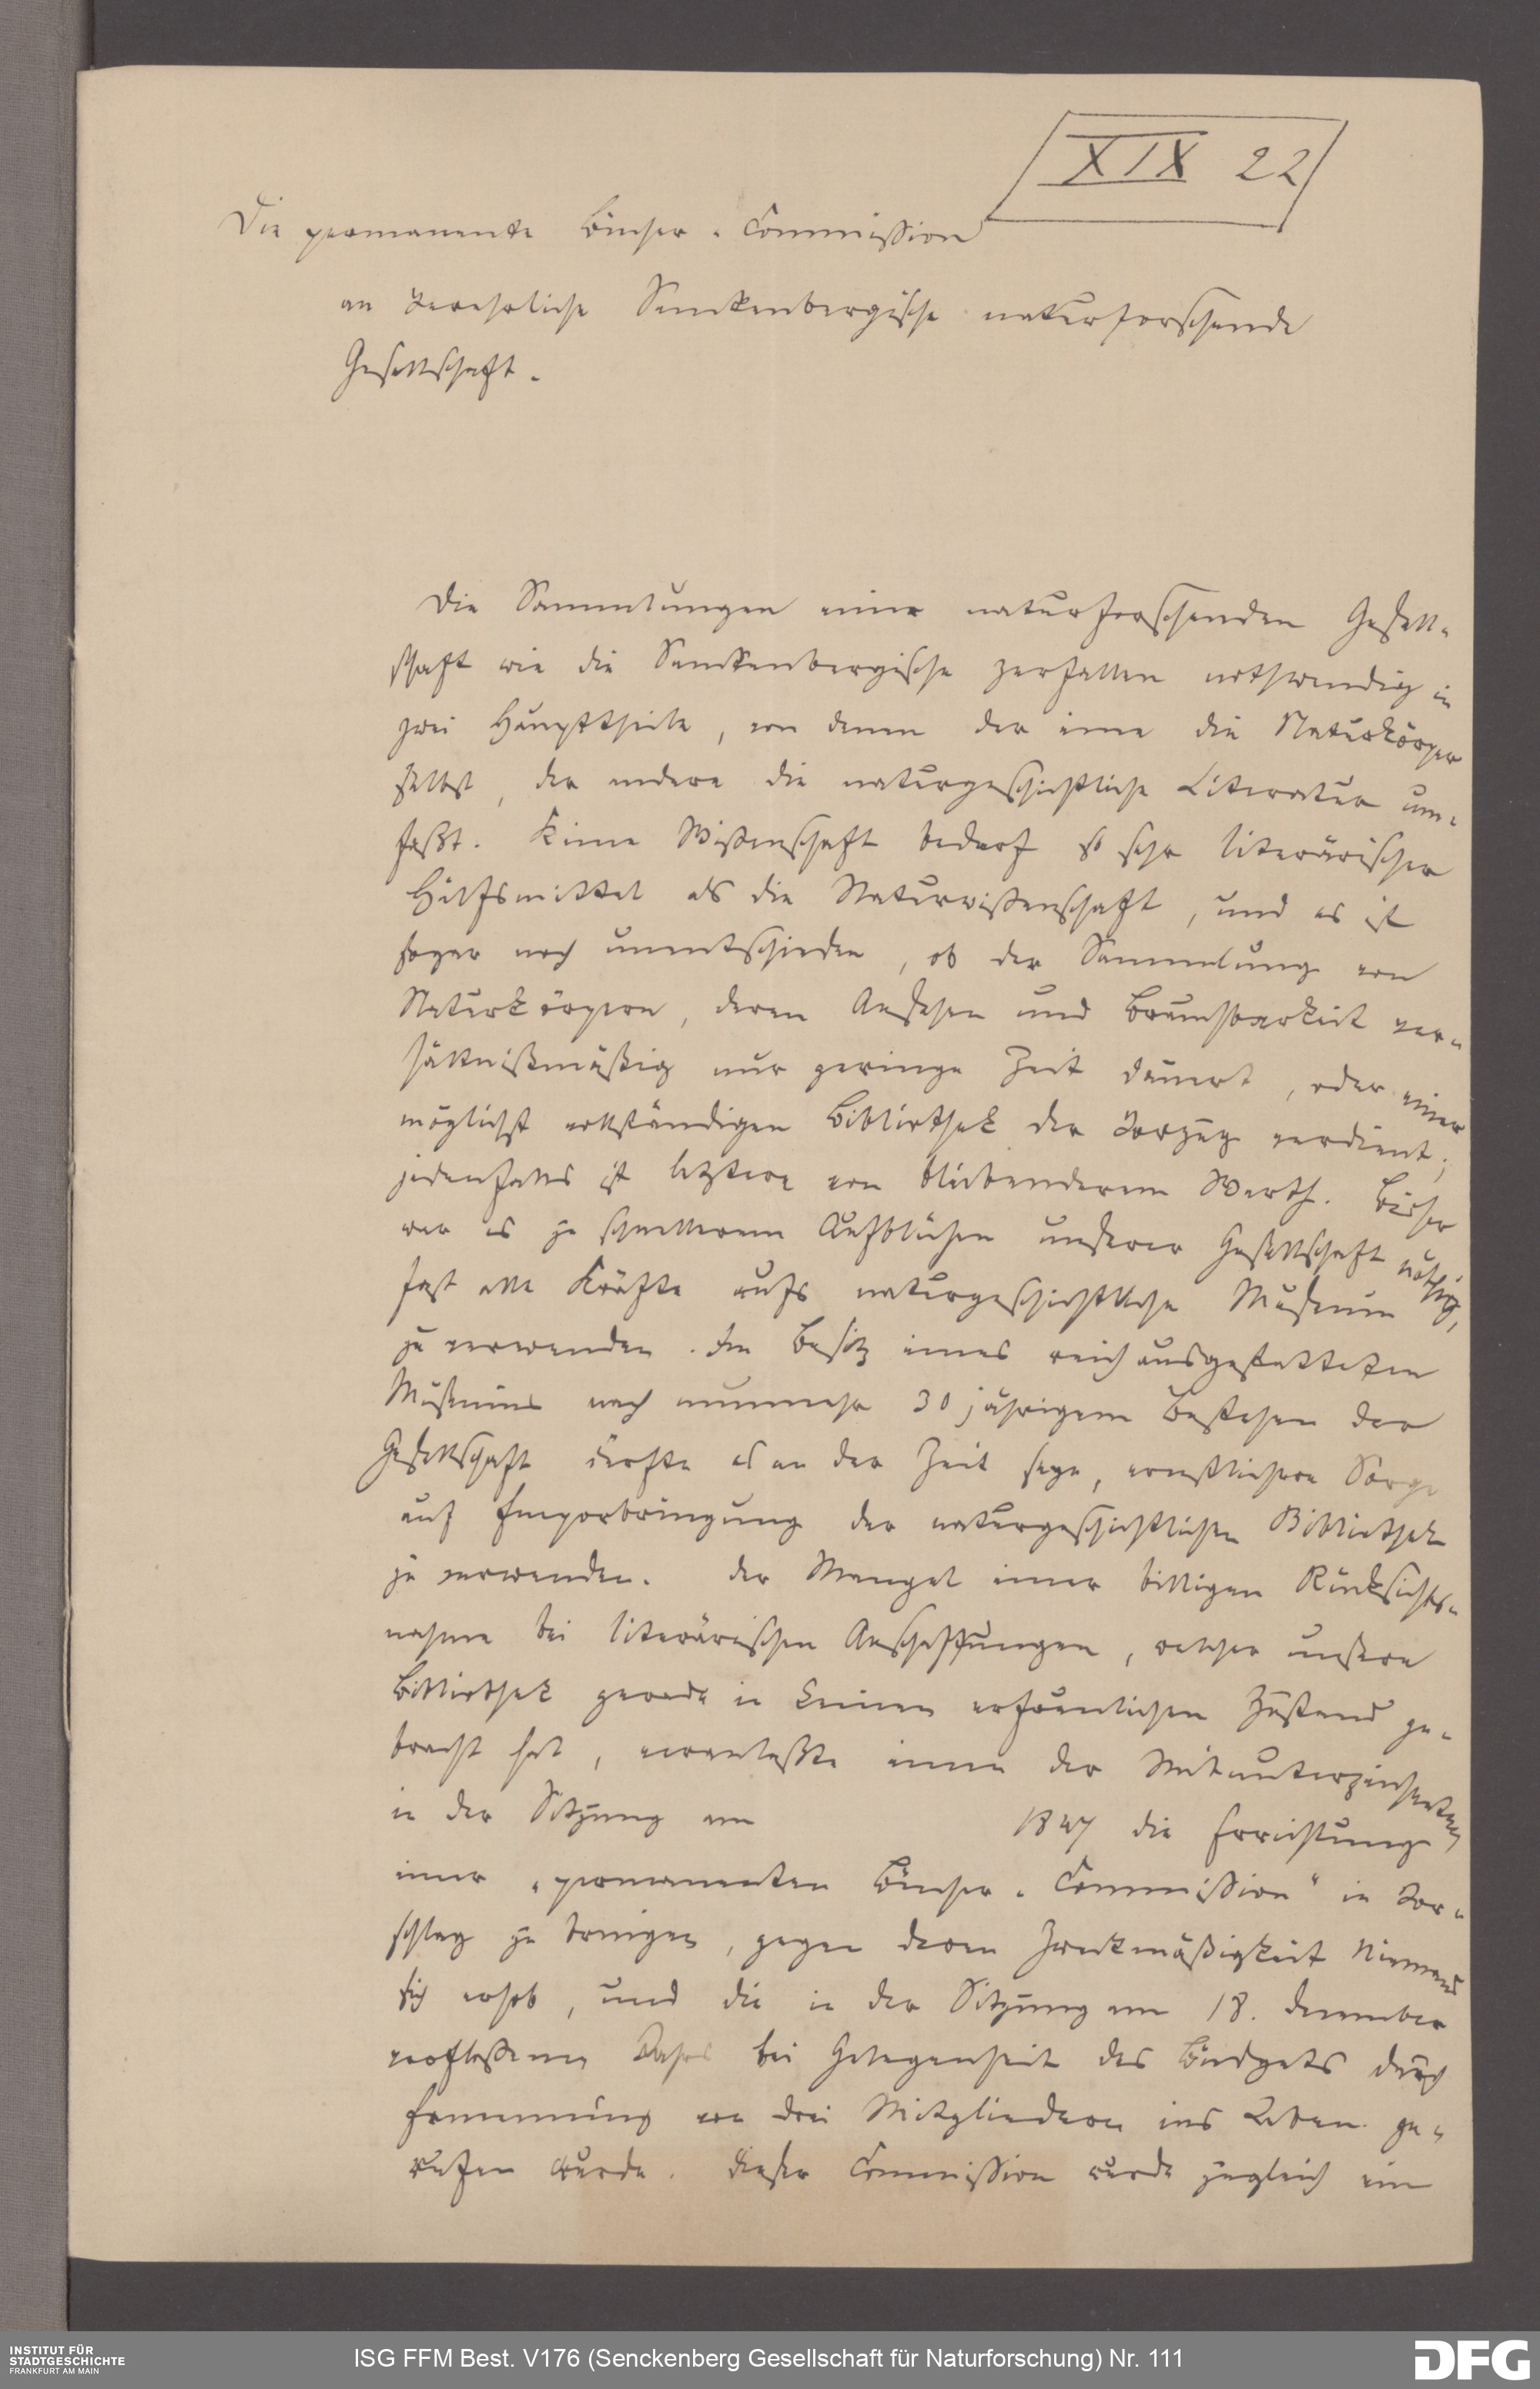 XIX 22
Die permanente Bücher-Commission
an verehrliche Senckenbergische naturforschende
Gesellschaft.
Die Sammlungen einer naturforschenden Gesell-
schaft wie die Senckenbergische zerfallen nothwendig in
zwei Haupttheile, von denen der eine die Naturkörper
selbst, der andere die naturgeschichtliche Literatur um-
faßt. Keine Wißenschaft bedarf so sehr literärischer
Hülfsmittel als die Naturwißenschaft, und es ist
sogar noch unentschieden, ob der Sammlung von
Naturkörpern, deren Ansehen und Brauchbarkeit ver-
hältnißmäßig nur geringe Zeit dauert, oder einer
möglichst vollständigen Bibliothek der Vorzug verdient;
jedenfalls ist letztere von bleibenderem Werth. Bisher
war es zu schnellerem Aufblühen unserer Gesellschaft nöthig,
fast alle Kräfte aufs naturgeschichtliche Museum
zu verwenden. Im Besitz eines reich ausgestatteten
Museums nach nunmehr 30 jährigem Bestehen der
Gesellschaft dürfte es an der Zeit seyn, ernstlichere Sorge
auf Emporbringung der naturgeschichtlichen Bibliothek
zu verwenden. Der Mangel einer billigen Rücksichts-
nahme bei literärischen Anschaffungen, welcher unsere
Bibliothek gerade in keinen erfreulichen Zustand ge-
bracht hat, veranlaßte einen der Mitunterzeichneten
in der Sitzung vom 1847 die Errichtung
einer „permanenten Bücher-Commission“ in Vor-
schlag zu bringen, gegen deren Zweckmäßigkeit Niemand
sich erhob, und die in der Sitzung vom 18. December
verfloßenen Jahrs bei Gelegenheit des Büdgets durch
Ernennung von drei Mitgliedern ins Leben ge-
rufen wurde. Dieser Commission wurde zugleich ein
INSTITUT FÜR
STADTGESCHICHTE
FRANKFURT AM MAIN
ISG FFM Best. V176 (Senckenberg Gesellschaft für Naturforschung) Nr. 111
DFG